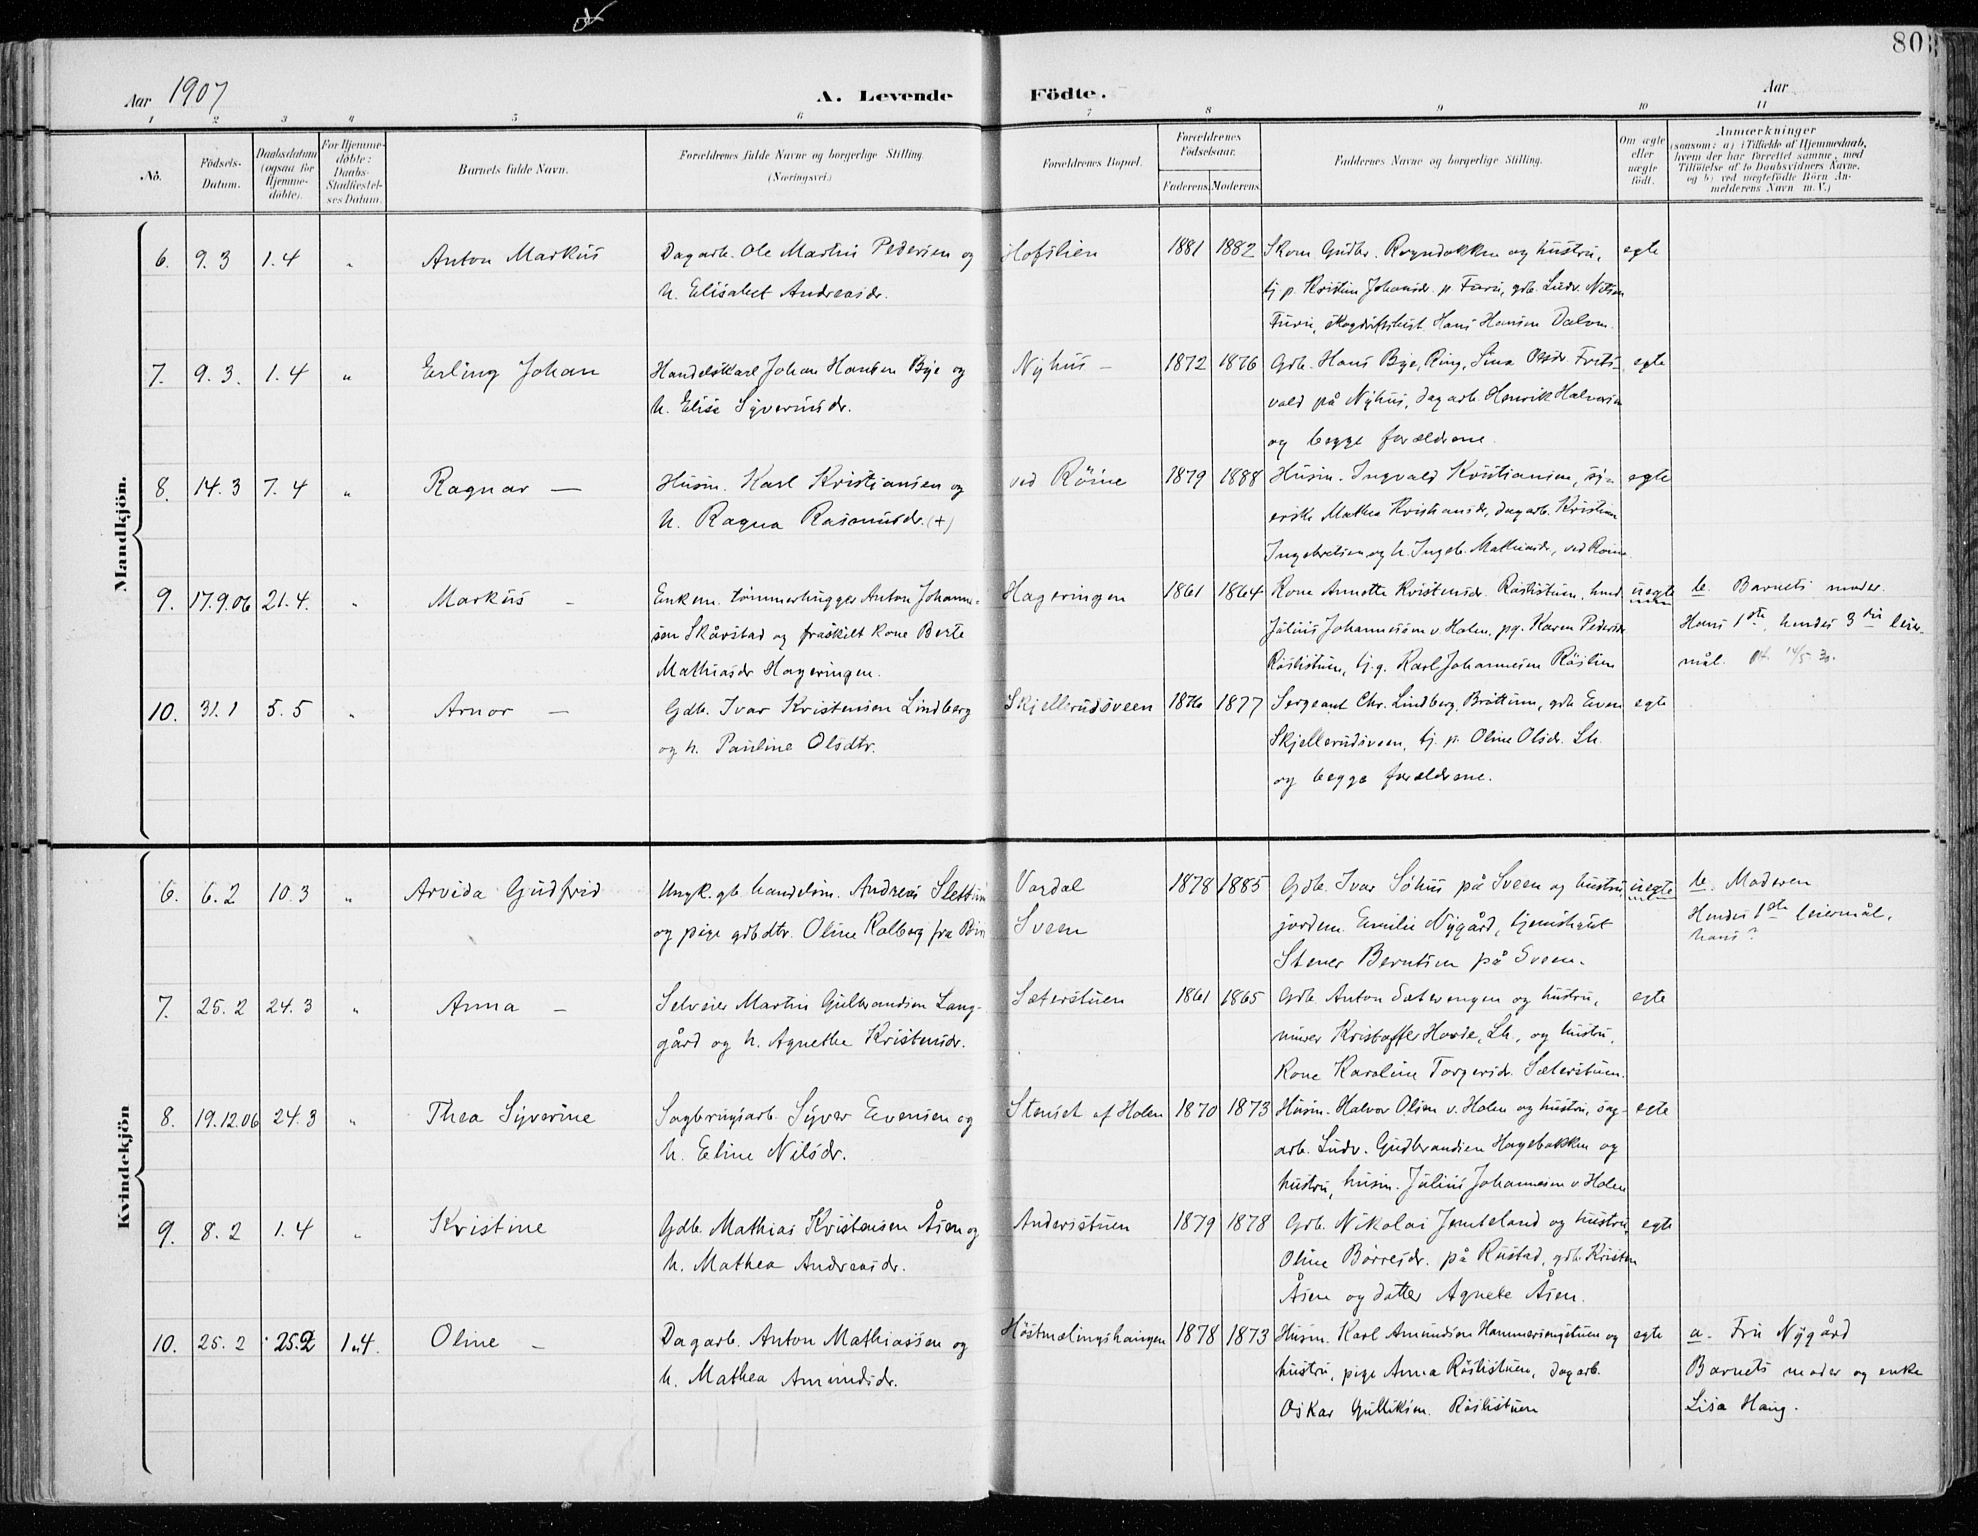 80
Aar 1907
A. Levende Födte.
Aar
1 2 3 4 5 6 7 8 9 10 11
No.
Födsels-Datum.
Daabsdatum (ogsaa for Hjemme-döbte).
For Hjemme-döbte: Daabs-Stadfæstel-ses Datum.
Barnets fulde Navn.
Forældrenes fulde Navne og borgerlige Stilling. (Næringsvei.)
Forældrenes Bopæl.
Forældrenes Födselsaar.
Faderens. Moderens.
Faddernes Navne og borgerlige Stilling.
Om ægte eller uægte födt.
Anmærkninger
(saasom: a) i Tilfælde af Hjemmedaab,
hvem der har forrettet samme, med
Tilföielse af to Daabsvidners Navne.
og b) ved uægtefödte Börn An-
melderens Navn m. V.)
Mandkjön.
6. 9.3 1.4 " Anton Markus
Dagarb. Ole Martin Pedersen og
h. Elisabet Andreasdr.
Hofslien 1881 1882
Skom. Gudbr. Rogndokken og hustru,
tj. p. Kristine Johansdr. p. Furu, gdb. Ludv. Nilsen
Furu, skogdriftsbest. Hans Hansen Dalom.
egte
7. 9.3. 1.4 " Erling Johan
Handelskarl Johan Hansen Bye og
h. Elise Syversdr.
Nyhus – 1872 1876
Gdb. Hans Bye, Ring, Sina Olsdr. Frits-
vold på Nyhus, dagarb. Henrik Halvorsen
og begge forældrene.
egte
8. 14.3 7.4 " Ragnar –
Husm. Karl Kristiansen og
h. Ragna Rasmusdr. (+)
ved Röine 1879 1888
Husm. Ingvald Kristiansen, sy-
erske Mathea Kristiansdr, dagarb. Kristian
Ingebretsen og h. Ingeb. Mathiasdr, ved Röine
egte
9. 17.9.06 21.4. " Markus –
Enkem. tömmerhugger Anton Johanne-
sen Skårstad og fraskilt kone Berte
Mathiasdr Hageringen.
Hageringen 1861 1864
Kone Annette Kristensdr. Röslistuen, husm.
Julius Johannessen v. Holen, pg. Karen Pedersdr
Röslistuen, tj.g. Karl Johannesen Röslien
uegte
b. Barnets moder.
Hans 1ste, hendes 3die leier-
mål.
10. 31.1 5.5 " Arnor –
Gdb. Ivar Kristensen Lindberg
og h. Pauline Olsdtr.
Skjellerudsveen 1876 1877
Sergeant Chr. Lindberg, Bröttum, gdb. Even
Skjellerudsveen, tj. p. Oline Olsdr. Lh.
og begge forældrene.
egte
Kvindekjön
6. 6.2 10.3 " Arvida Gudfrid
Ungk. gb. handelsm. Andreas Slettum
og pige gdbdtr. Oline Kolberg fra Biri
Vardal
Sveen
1878 1885
Gdb. Ivar Söhus på Sveen og hustru,
jordem. Emilie Nygård, tjenestgut
Stener Berntsen på Sveen.
uegte
b. Moderen
Hendes 1ste leiermål,
hans?
7. 25.2 24.3 " Anna –
Selveier Martin Gulbrandsen Lang-
gård og h. Agnethe Kristensdr.
Sæterstuen 1861 1865
Gdb. Anton Sæterengen og hustru,
murer Kristoffer Hovde, Lh., og hustru,
Kone Karoline Torgersdr. Sæterstuen.
egte
8. 19.12.06 24.3 " Thea Syverine
Sagbrugsarb. Syver Evensen og
h. Eline Nilsdr.
Stenset af Holen 1870 1873
Husm. Halvor Olsen v. Holen og hustru, sag-
arb. Ludv. Gudbrandsen Hagebakken og
hustru, husm. Julius Johannesen v Holen
egte
9. 8.2 1.4 " Kristine
Gdb. Mathias Kristensen Åsen og
h. Mathea Andreasdr.
Andersstuen 1879 1878
Gdb. Nikolai Jemteland og hustru,
Oline Börresdr. på Rustad, gdb. Kristen
Åsen og datter Agnete Åsen.
egte
10. 25.2 25.2 1.4. Oline –
Dagarb. Anton Mathiassen og
h. Mathea Amundsdr.
Höstmælingshaugen 1878 1873
Husm. Karl Amundsen Hammersengstuen og
hustru, pige Anna Röslistuen, dagarb.
Oskar Gulliksen Röslistuen
egte
a. Fru Nygård
Barnets moder og enke
Lisa Haug.